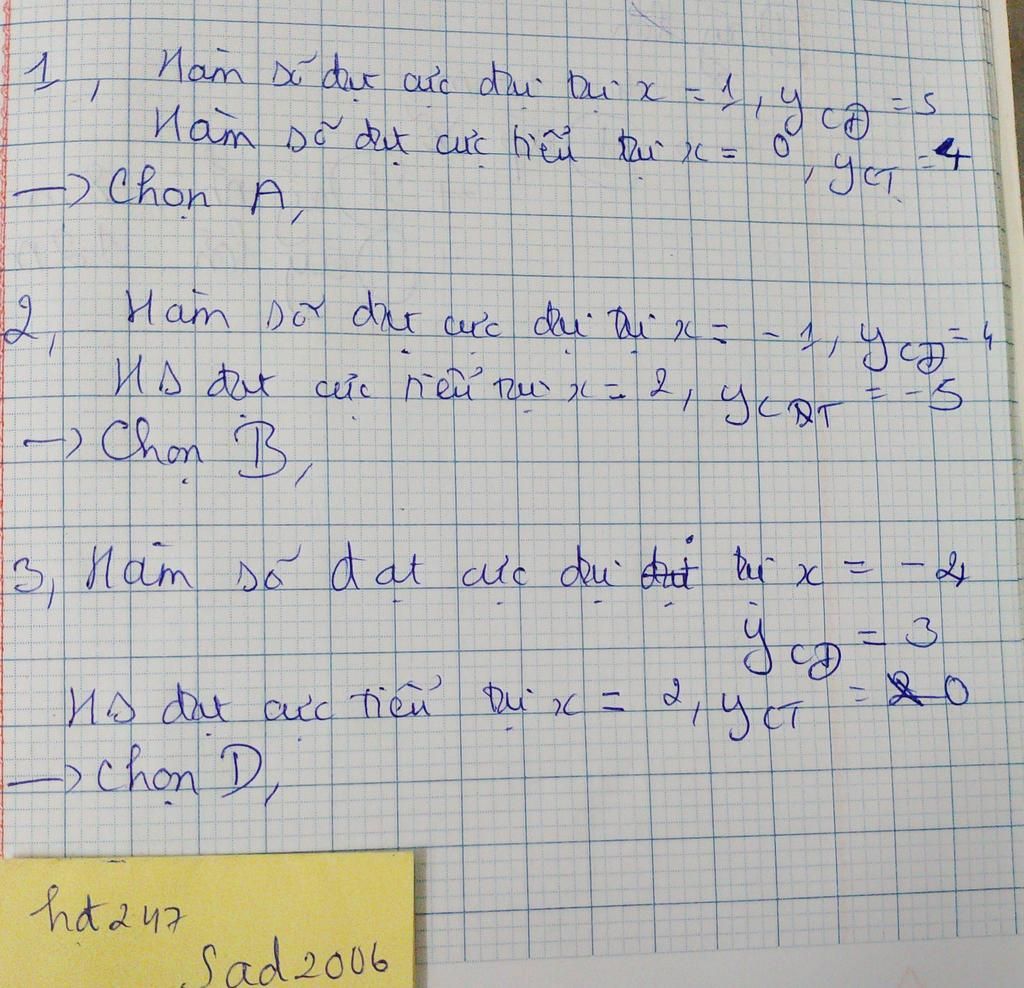 1, Hàm số đạt cực đại tại x = 1, yCĐ = 5
Hàm số đạt cực tiểu tại x = 0, yCT = 4
→ Chọn A,
2, Hàm số đạt cực đại tại x = -1, yCĐ = 4
HS đạt cực tiểu tại x = 2, yCT = -5
→ Chọn B,
3, Hàm số đạt cực đại tại x = -2
yCĐ = 3
HS đạt cực tiểu tại x = 2, yCT = 0
→ Chọn D,
hd247
Sad2006